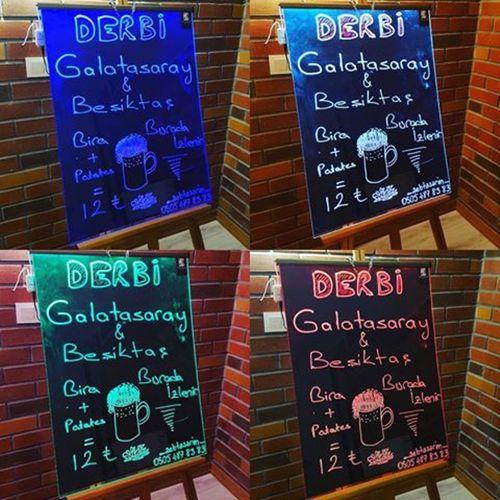 DERBİ
Galatasaray
&
Beşiktaş
Bira
+
Patates
=
12 ₺
Burada
İzlenir
sebtasarim
0505 487 83 83
DERBİ
Galatasaray
&
Beşiktaş
Bira
+
Patates
=
12 ₺
Burada
İzlenir
sebtasarim
0505 487 83 83
DERBİ
Galatasaray
&
Beşiktaş
Bira
+
Patates
=
12 ₺
Burada
İzlenir
sebtasarim
0505 487 83 83
DERBİ
Galatasaray
&
Beşiktaş
Bira
+
Patates
=
12 ₺
Burada
İzlenir
sebtasarim
0505 487 83 83